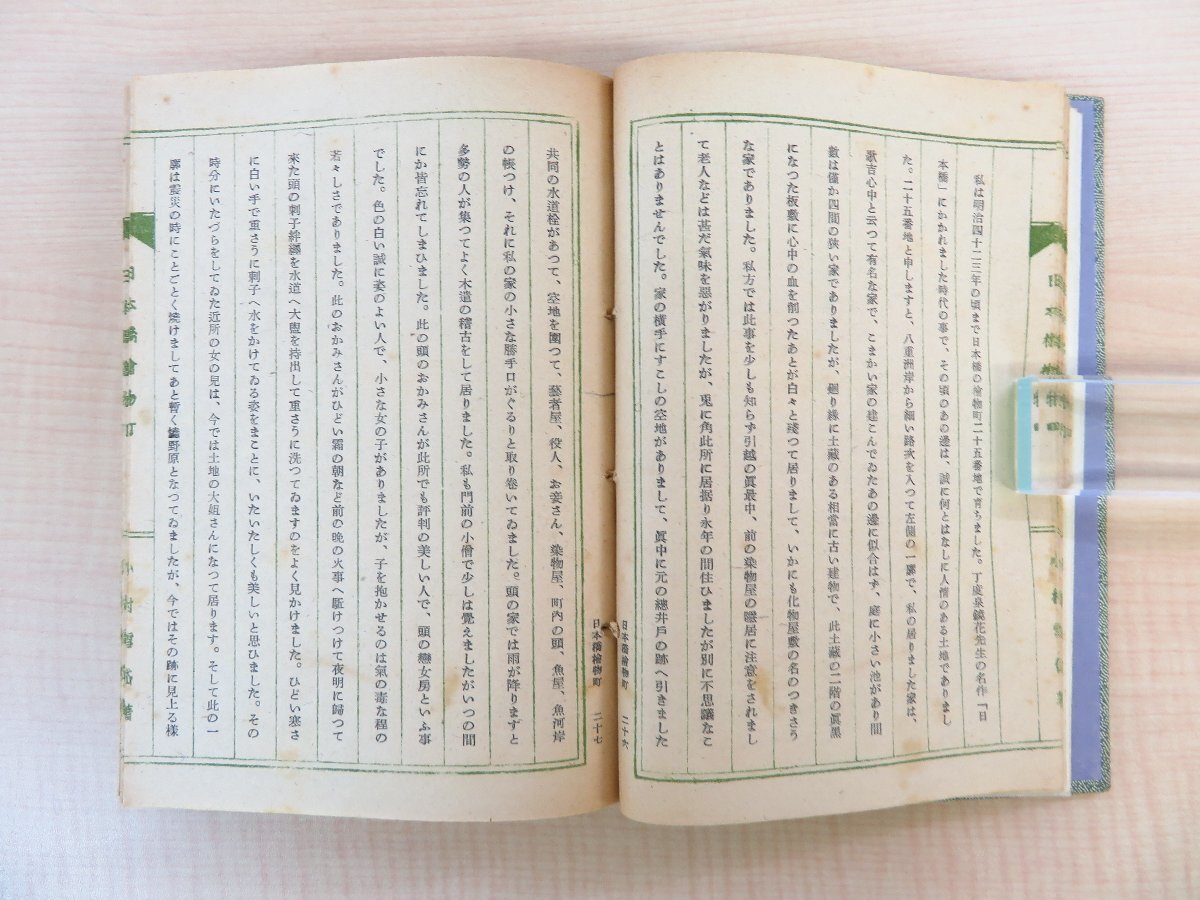 私は明治四十二三年の頃まで日本橋の檜物町二十五番地で育ちました。丁度泉鏡花先生の名作「日
本橋」にかかれました時代の事で、その頃のあの邊は、誠に何とはなしに人情のある土地でありまし
た。二十五番地と申しますと、八重洲岸から細い路次を入つて左側の一廓で、私の居りました家は、
歌吉心中と云つて有名な家で、こまかい家の建こんでゐたあの邊に似合はず、庭に小さい池があり間
數は僅か四間の狹い家でありましたが、廻り緣に土藏のある相當に古い建物で、此土藏の二階の眞黑
になつた板敷に心中の血を削つたあとが白々と殘つて居りまして、いかにも化物屋敷の名のつきさう
な家でありました。私方では此事を少しも知らず引越の眞最中、前の染物屋の隱居に注意をされまし
て老人などは甚だ氣味を惡がりましたが、兎に角此所に居据り永年の間住ひましたが別に不思議なこ
とはありませんでした。家の橫手にすこしの空地がありまして、眞中に元の總井戶の跡へ引きました
日本橋檜物町 二十六
共同の水道栓があつて、空地を圍つて、藝者屋、役人、お妾さん、染物屋、町內の頭、魚屋、魚河岸
の帳つけ、それに私の家の小さな勝手口がぐるりと取り卷いてゐました。頭の家では雨が降りますと
多勢の人が集つてよく木遣の稽古をして居りました。私も門前の小僧で少しは覺えましたがいつの間
にか皆忘れてしまひました。此の頭のおかみさんが此所でも評判の美しい人で、頭の戀女房といふ事
でした。色の白い誠に姿のよい人で、小さな女の子がありましたが、子を抱かせるのは氣の毒な程の
若々しさでありました。此のおかみさんがひどい霜の朝など前の晚の火事へ駈けつけて夜明に歸つて
來た頭の刺子絆纒を水道へ大盥を持出して重さうに洗つてゐますのをよく見かけました。ひどい寒さ
に白い手で重さうに刺子へ水をかけてゐる姿をまことに、いたいたしくも美しいと思ひました。その
時分にいたづらをしてゐた近所の女の兒は、今では土地の大姐さんになつて居ります。そして此の一
廓は震災の時にことごとく燒けましてあと暫く燒野原となつてゐましたが、今ではその跡に見上る樣
日本橋檜物町 二十七
日本橋檜物町
小村雪岱著